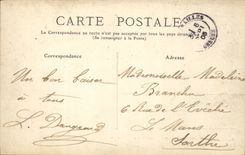 CARTE POSTALE
La Correspondance au recto n'est pas acceptée par tous les pays étrangers
(Se renseigner à la Poste)
Correspondance
Adresse
Un bon baiser
à tous
L.
Mademoiselle Madeleine
Branchu
6 Rue de l'Évêché
Le Mans
Sarthe